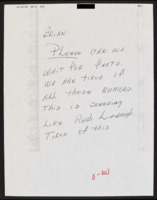 BRIAN
PLEASE CAN WE
WAIT FOR FACTS.
WE ARE TIRED OF
ALL THESE RUMORS.
THIS IS SOUNDING
LIKE RUSH LIMBAUGH
TIRED OF THIS